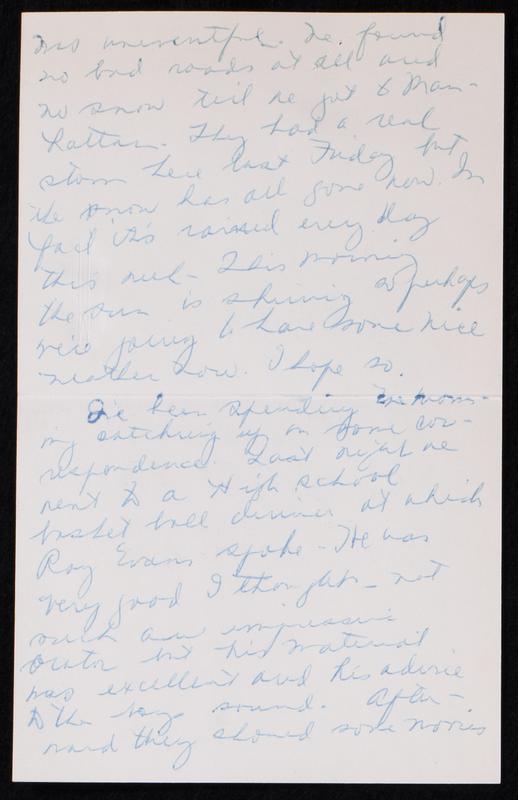 was uneventful. We found
no bad roads at all and
no snow till we got to Man-
hattan. They had a real
storm here last Friday but
the snow has all gone now. In
fact it's rained every day
this week - This morning
the sun is shining so perhaps
we're going to have some nice
weather now. I hope so.
I've been spending the morn-
ing catching up on some cor-
respondence. Last night we
went to a High school
basket ball dinner at which
Roy Evans spoke - He was
very good I thought - not
such an impressive
orator but his material
was excellent and his advice
to the boys sound. After-
ward they showed some movies